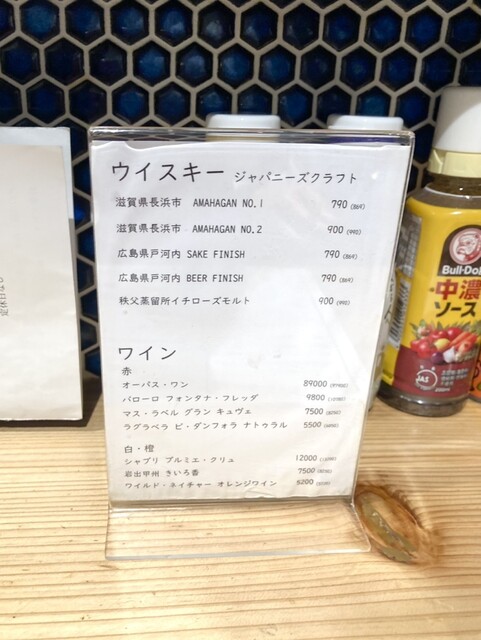 ウイスキー ジャパニーズクラフト
滋賀県長浜市 AMAHAGAN NO.1 790 (869)
滋賀県長浜市 AMAHAGAN NO.2 900 (990)
広島県戸河内 SAKE FINISH 790 (869)
広島県戸河内 BEER FINISH 790 (869)
秩父蒸留所イチローズモルト 900 (990)
ワイン
赤
オーパス・ワン 89000
バローロ フォンタナ・フレッダ 9800
マス・ラベル グラン キュヴェ 7500
ラグラベラ ビ・ダンフォラ ナトゥラル 5500
白・橙
シャブリ プルミエ・クリュ 12000
岩出甲州 きいろ香 7500
ワイルド・ネイチャー オレンジワイン 5200
Bull-Dog
中濃
ソース
JAS
定休日なし